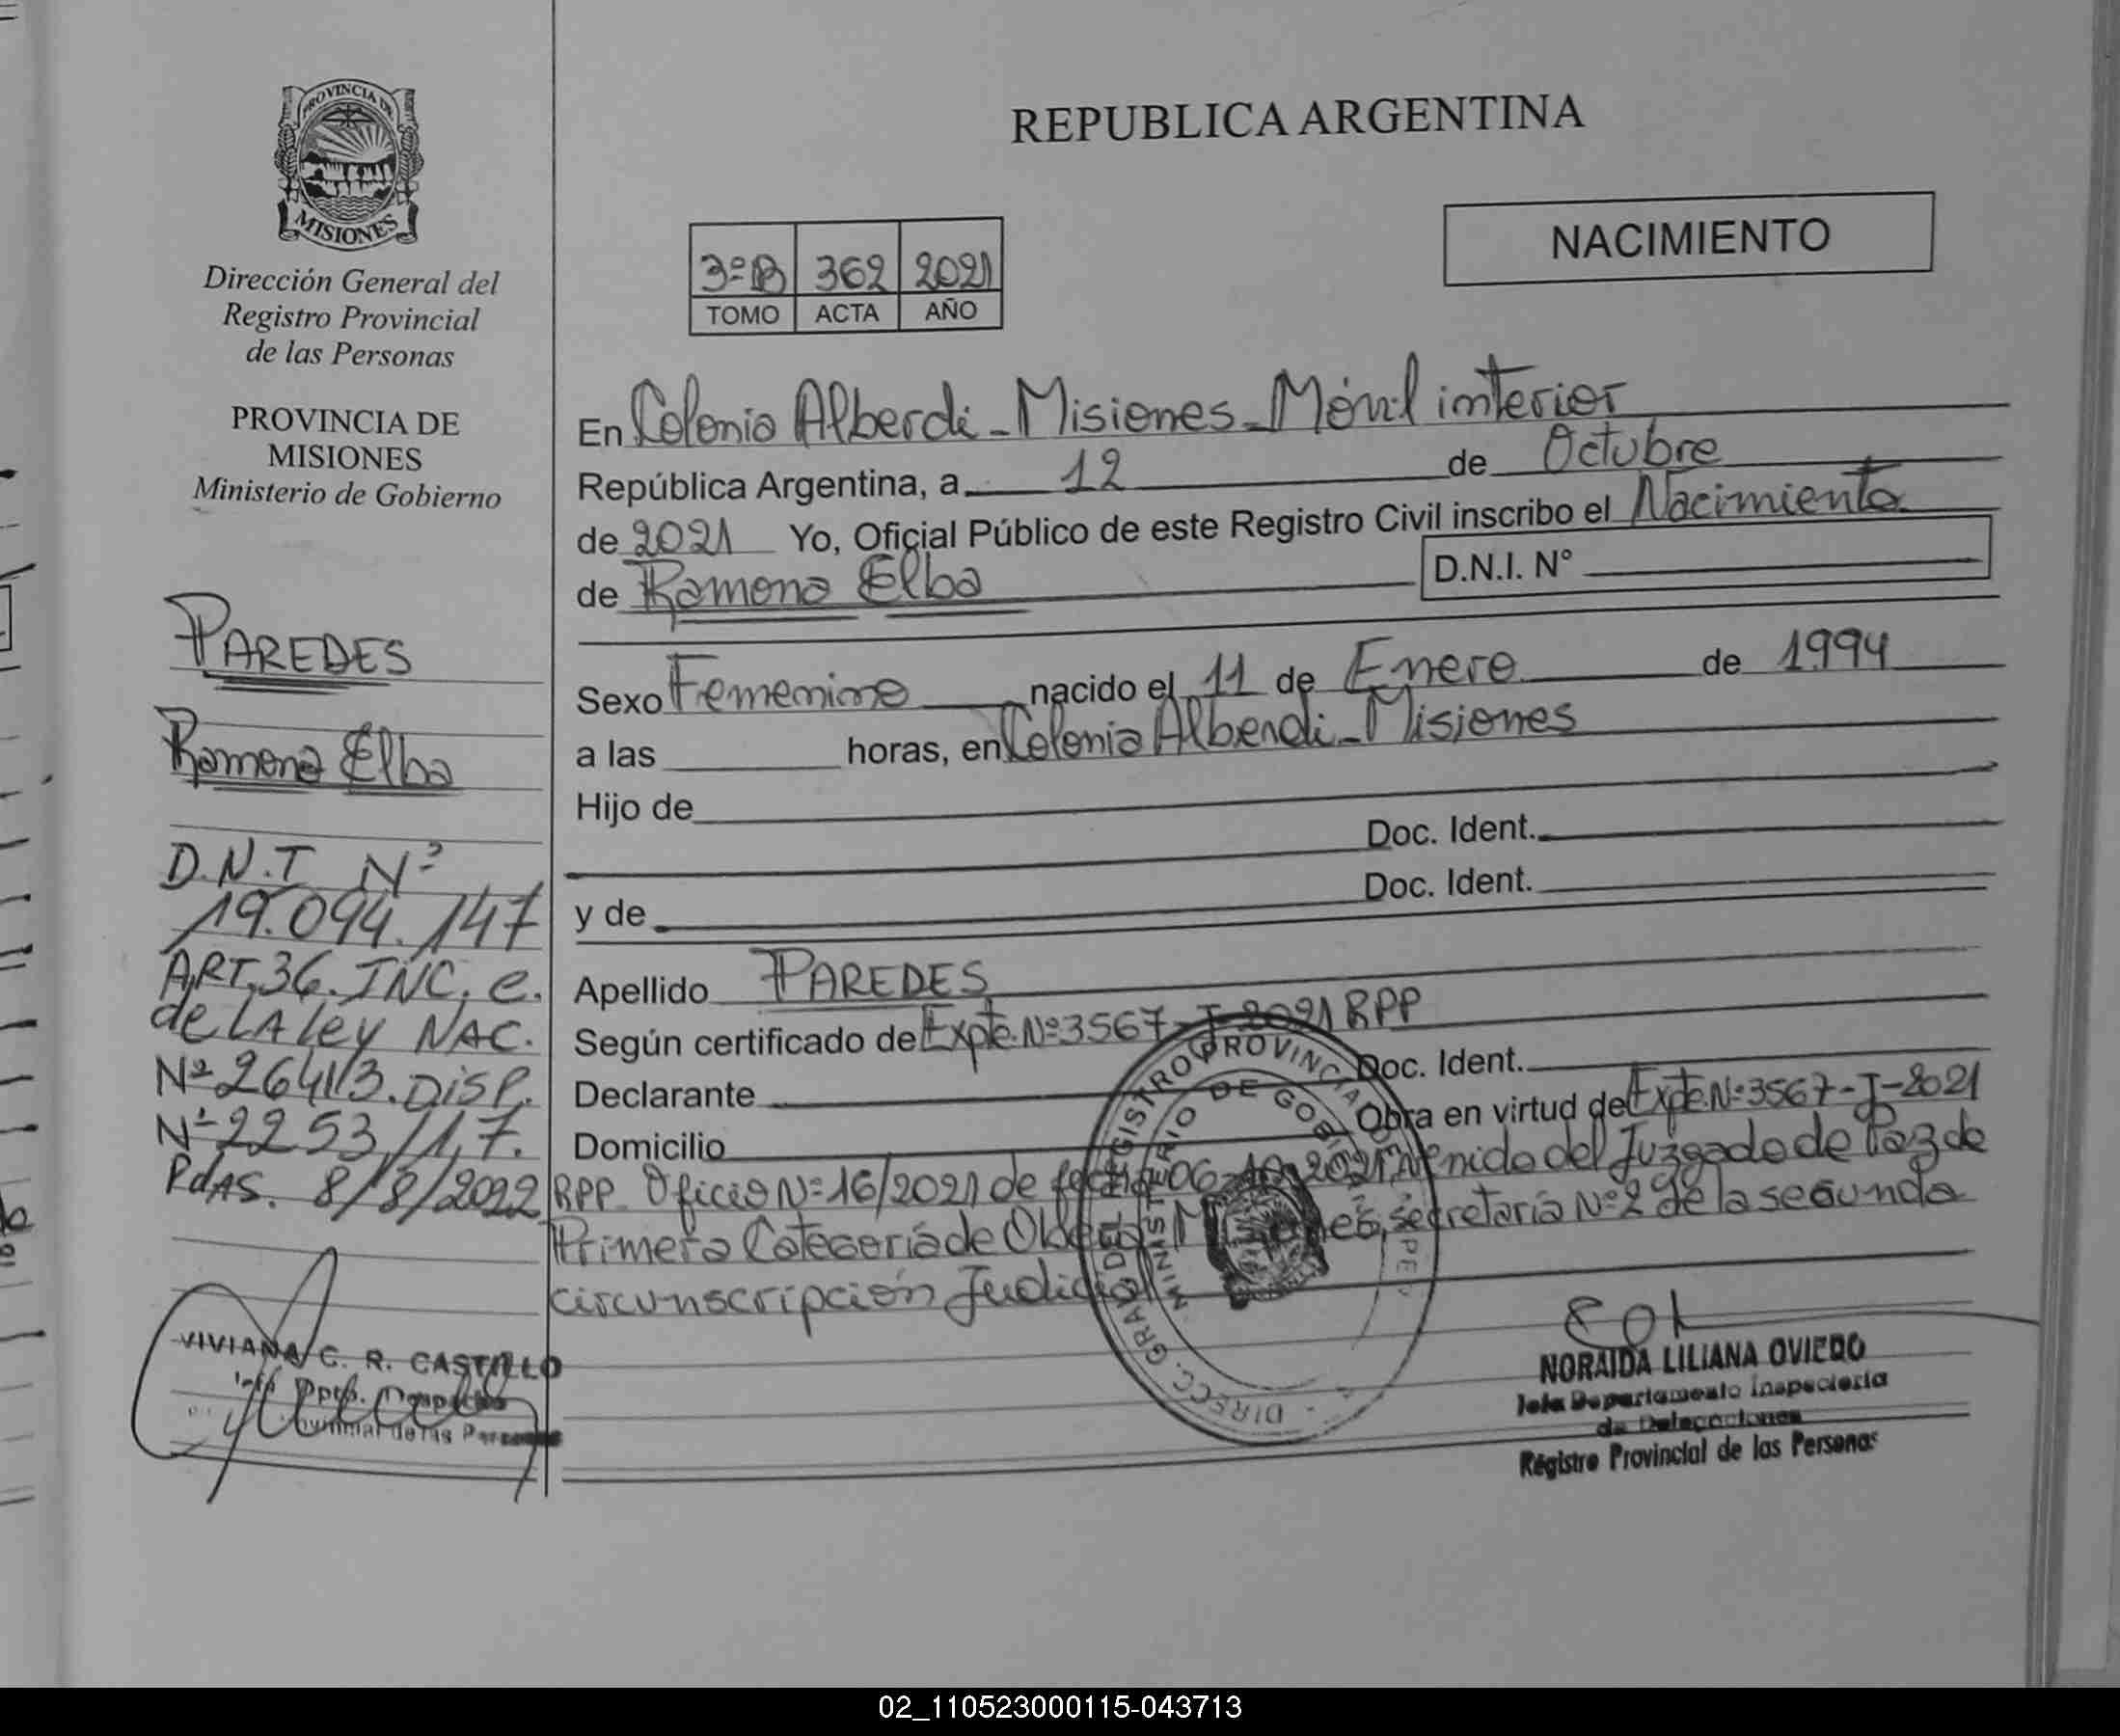 PROVINCIA DE
MISIONES
Dirección General del
Registro Provincial
de las Personas
PROVINCIA DE
MISIONES
Ministerio de Gobierno
PAREDES
Ramona Elba
D.N.I Nº
19.094.147
ART.36.INC.e.
de LA ley NAC.
Nº 26413.DISP.
Nº 2253/17.
PdAS. 8/8/2022
VIVIANA C. R. CASTILLO
Dpto.
de las Personas
REPUBLICA ARGENTINA
NACIMIENTO
3º B 362 2021
TOMO ACTA AÑO
En Colonia Alberdi - Misiones - Móvil interior
República Argentina, a 12 de Octubre
de 2021 Yo, Oficial Público de este Registro Civil inscribo el Nacimiento
de Ramona Elba D.N.I. N°
Sexo Femenino nacido el 11 de Enero de 1994
a las horas, en Colonia Alberdi - Misiones
Hijo de
Doc. Ident.
Doc. Ident.
y de
Apellido PAREDES
Según certificado de Expte.Nº3567-I-2021 RPP
Declarante Doc. Ident.
Domicilio Obra en virtud del Expte.Nº3567-I-2021
RPP Oficio Nº16/2021 de fecha 06-10-2021, venido del Juzgado de Paz de
Primera Categoría de Oberá Misiones, secretaría Nº2 de la segunda
circunscripción Judicial
DIRECC. GRAL DEL REGISTRO PROVINCIAL
MINISTERIO DE GOBIERNO
NORAIDA LILIANA OVIEDO
Jefa Departamento Inspectoría
de Delegaciones
Registro Provincial de las Personas
02_110523000115-043713